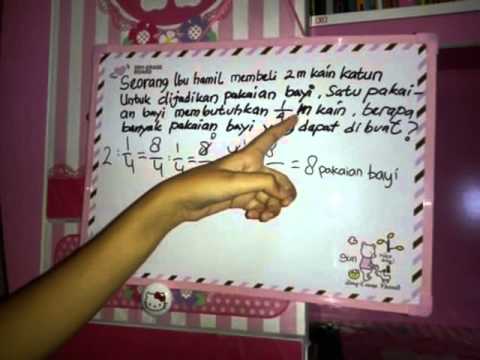 Seorang Ibu hamil membeli 2 m kain katun
Untuk dijadikan pakaian bayi. Satu pakai-
an bayi membutuhkan 1/4 m kain, berapa
banyak pakaian bayi dapat dibuat?
2 : 1/4 = 8/4 : 1/4 = 8 = 8 pakaian bayi
Sun